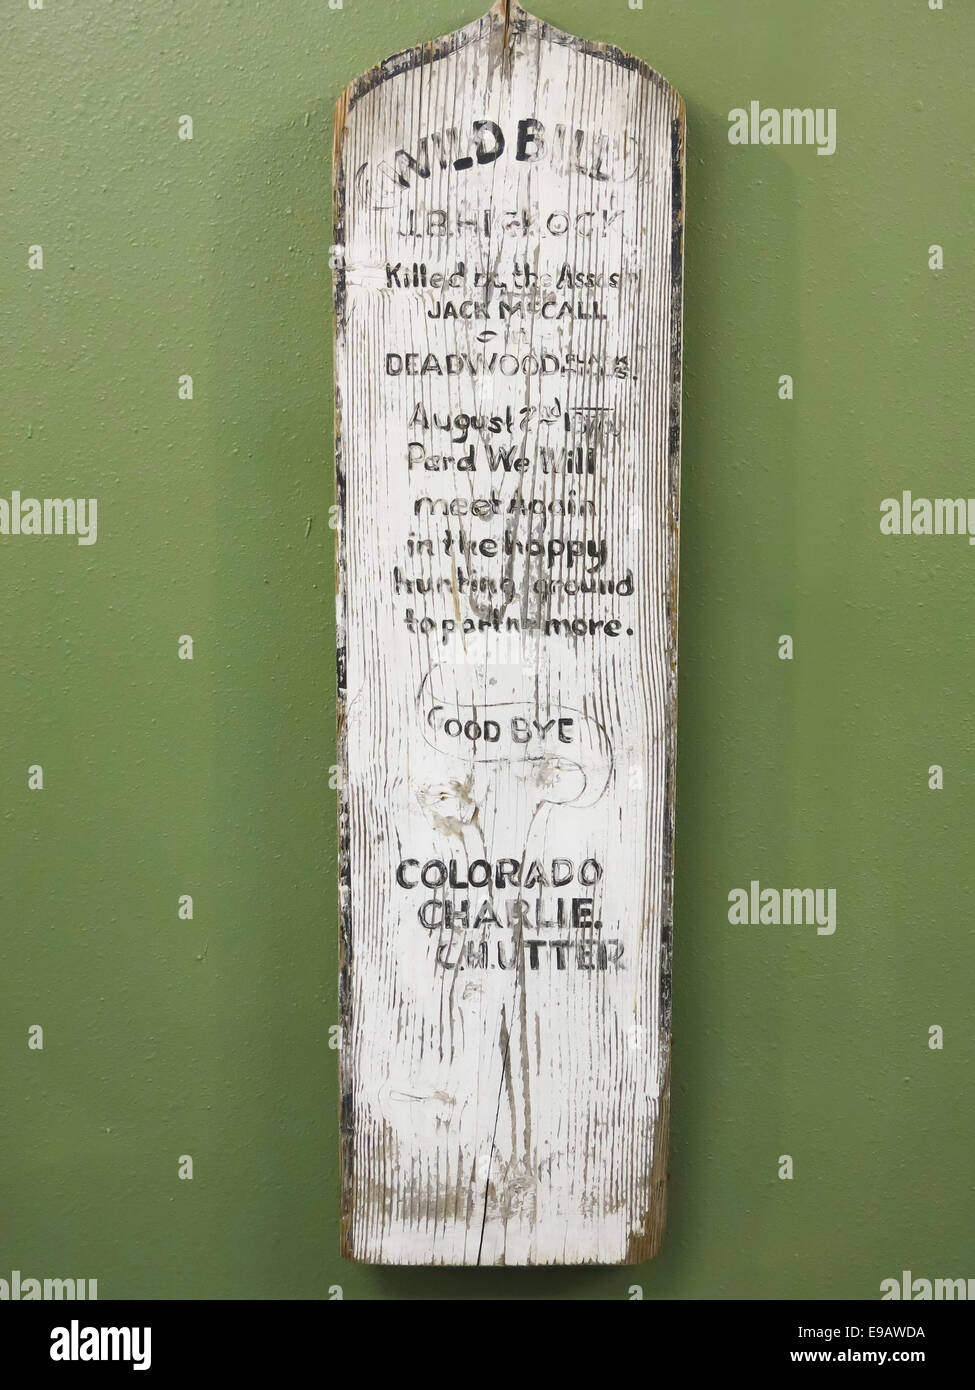 WILD BILL
J.B. HICKOCK
Killed by the Assassin
JACK McCALL
DEADWOOD
August 2nd 1876
Pard We Will
meet Again
in the happy
hunting ground
to part no more.
GOOD BYE
COLORADO
CHARLIE.
C.H. UTTER
alamy
alamy
Image ID: E9AWDA
www.alamy.com